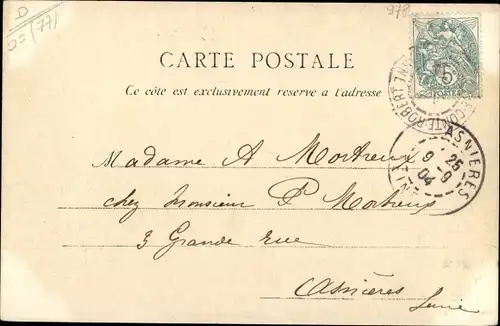 D
(77)
978
CARTE POSTALE
Ce côte est exclusivement reserve a l'adresse
5
POSTES
COMTE-ROBERT
ASNIERES
9 25
04 9
Madame A Mortreux
chez Monsieur P Mortreux
3 Grande rue
Asnières
Seine